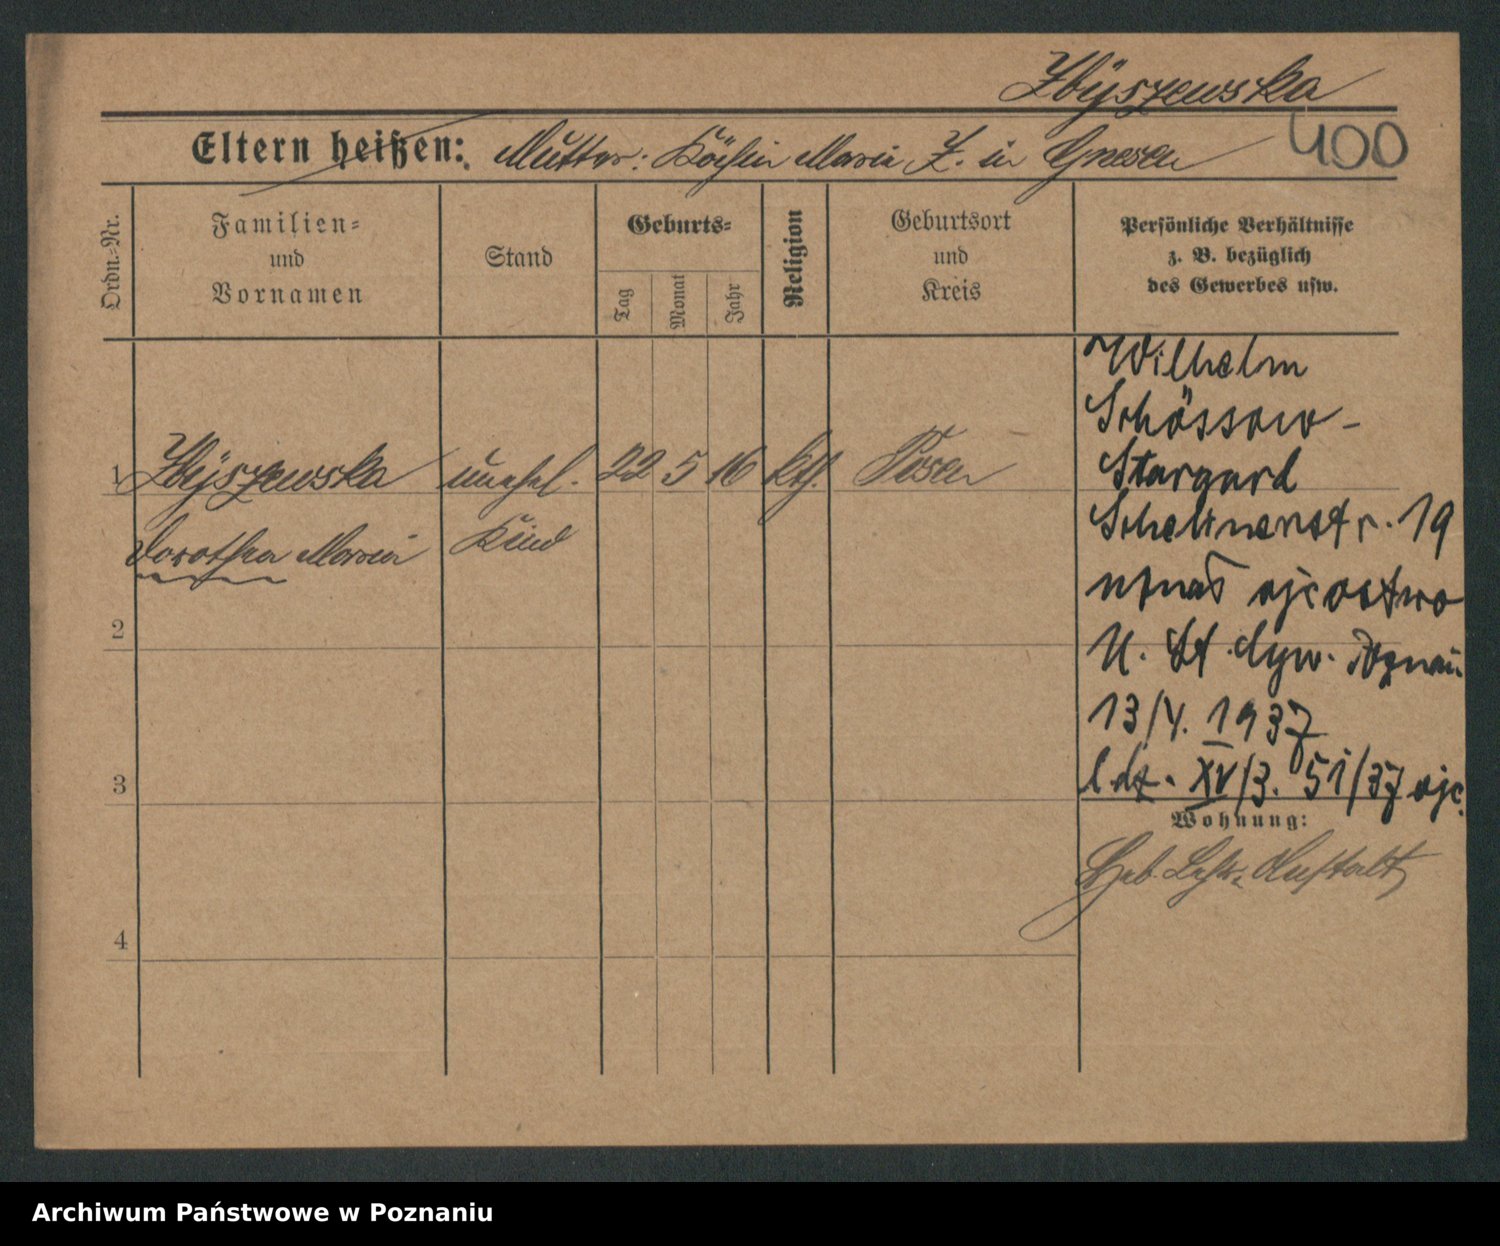 Zbyszewska
400
Eltern heißen: Mutter: Köchin Maria Z. in Gnesen
Ordn.-Nr.
Familien-
und
Vornamen
Stand
Geburts-
Tag
Monat
Jahr
Religion
Geburtsort
und
Kreis
Persönliche Verhältnisse
z. B. bezüglich
des Gewerbes usw.
1 Zbyszewska unehel. 22 5 16 kth. Posen
Dorothea Maria Kind
2
3
4
Wilhelm
Schössow-
Stargard
19
uznał ojcostwo
U. St. Cyw. Poznań
13/V. 1937
l. dz. XV/3. 51/37 ojc.
Wohnung:
Heb. Lehr-Anstalt
Archiwum Państwowe w Poznaniu